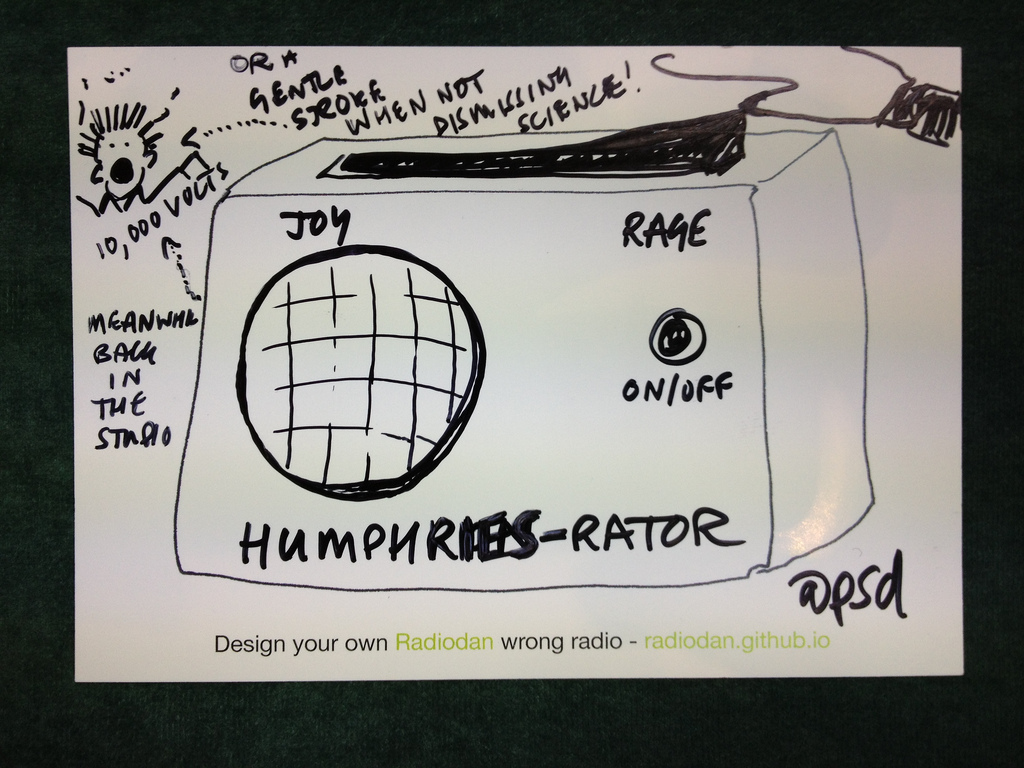 OR A
GENTLE
STROKE
WHEN NOT
DISMISSING
SCIENCE!
10,000 VOLTS
JOY
RAGE
MEANWHILE
BACK
IN
THE
STUDIO
ON/OFF
HUMPHRIES-RATOR
@psd
Design your own Radiodan wrong radio - radiodan.github.io